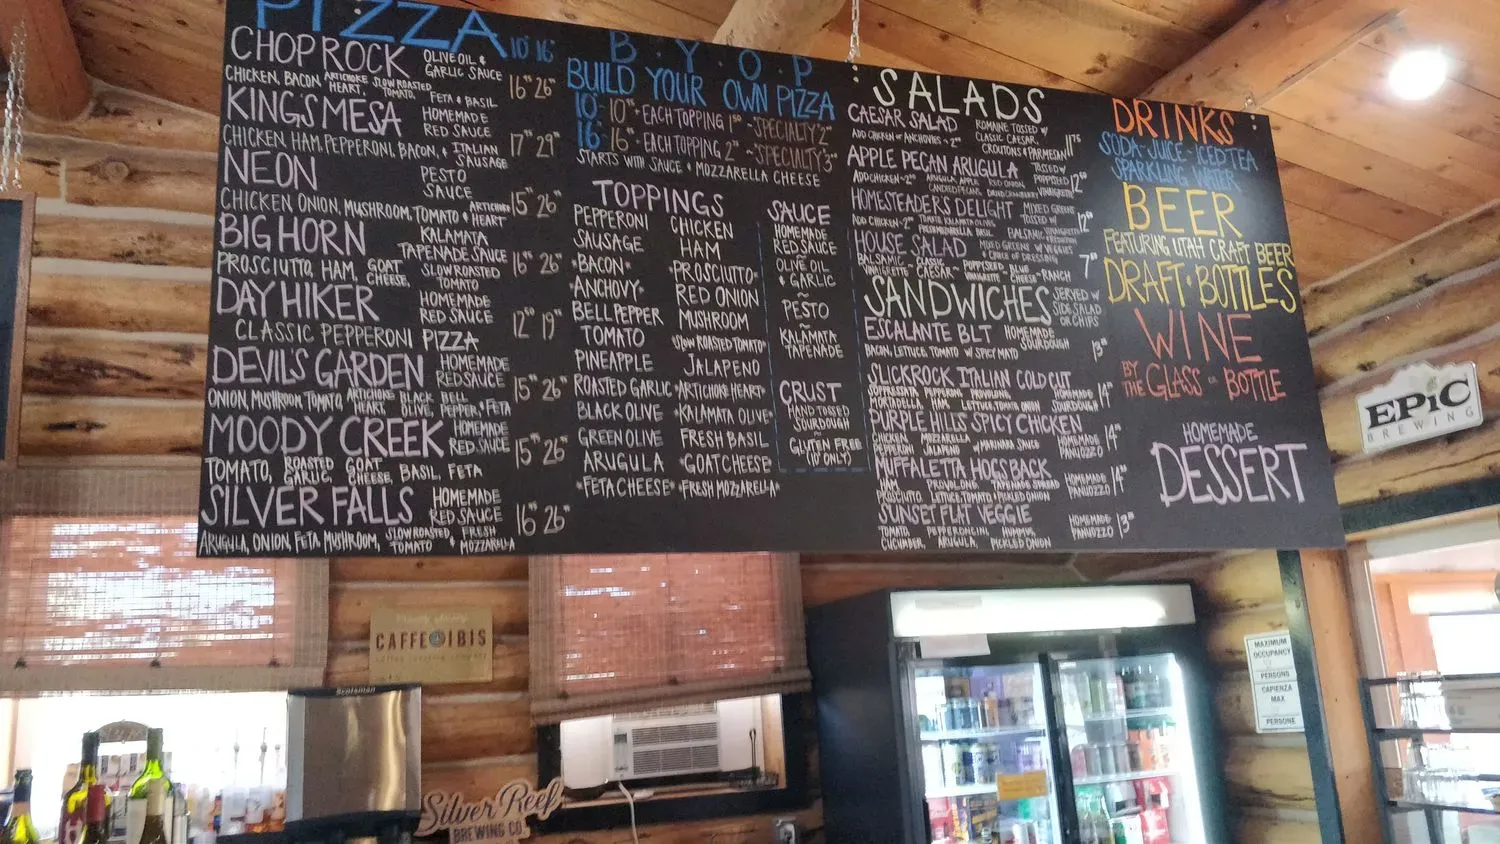 PIZZA 10" 16"
CHOP ROCK OLIVE OIL & GARLIC SAUCE
CHICKEN, BACON, ARTICHOKE HEART, SLOW ROASTED TOMATO, FETA & BASIL 16 26
KINGS MESA HOMEMADE RED SAUCE
CHICKEN, HAM, PEPPERONI, BACON, & ITALIAN SAUSAGE 17 29
NEON PESTO SAUCE
CHICKEN, ONION, MUSHROOM, TOMATO & ARTICHOKE HEART 15 26
BIG HORN KALAMATA TAPENADE SAUCE
PROSCIUTTO, HAM, GOAT CHEESE, SLOW ROASTED TOMATO 16 26
DAY HIKER HOMEMADE RED SAUCE
CLASSIC PEPPERONI PIZZA 12 19
DEVIL'S GARDEN HOMEMADE RED SAUCE
ONION, MUSHROOM, TOMATO, ARTICHOKE HEART, BLACK OLIVE, BELL PEPPER, & FETA 15 26
MOODY CREEK HOMEMADE RED SAUCE
TOMATO, ROASTED GARLIC, GOAT CHEESE, BASIL, FETA 15 26
SILVER FALLS HOMEMADE RED SAUCE
ARUGULA, ONION, FETA, MUSHROOM, SLOW ROASTED TOMATO & FRESH MOZZARELLA 16 26
B.Y.O.P
BUILD YOUR OWN PIZZA
10" 10 + EACH TOPPING 1 - SPECIALTY 2
16" 16 + EACH TOPPING 2 - SPECIALTY 3
STARTS WITH SAUCE & MOZZARELLA CHEESE
TOPPINGS
PEPPERONI
SAUSAGE
*BACON*
*ANCHOVY*
BELL PEPPER
TOMATO
PINEAPPLE
ROASTED GARLIC
BLACK OLIVE
GREEN OLIVE
ARUGULA
*FETA CHEESE*
CHICKEN
HAM
*PROSCIUTTO*
RED ONION
MUSHROOM
*SLOW ROASTED TOMATO*
JALAPENO
*ARTICHOKE HEART*
*KALAMATA OLIVE*
FRESH BASIL
*GOAT CHEESE*
*FRESH MOZZARELLA*
SAUCE
HOMEMADE
RED SAUCE
~
OLIVE OIL
& GARLIC
~
PESTO
~
KALAMATA
TAPENADE
CRUST
HAND TOSSED
SOURDOUGH
~
GLUTEN FREE
(10" ONLY)
SALADS
CAESAR SALAD ROMAINE TOSSED W/ CLASSIC CAESAR, CROUTONS & PARMESAN 11.75
ADD CHICKEN OR ANCHOVIES - 2
APPLE PECAN ARUGULA TOSSED W/ POPPYSEED VINAIGRETTE 12
ADD CHICKEN - 2 ARUGULA, APPLE, RED ONION, CANDIED PECANS, DRIED CRANBERRY
HOMESTEADERS DELIGHT MIXED GREENS TOSSED W/ BALSAMIC VINAIGRETTE 12
ADD CHICKEN - 2 TOMATO, KALAMATA OLIVE, FRESH MOZZARELLA, BASIL
HOUSE SALAD MIXED GREENS W/ VEGGIES & CHOICE OF DRESSING 7
BALSAMIC VINAIGRETTE - CLASSIC CAESAR - POPPYSEED VINAIGRETTE - BLUE CHEESE - RANCH
SANDWICHES SERVED W/ SIDE SALAD OR CHIPS
ESCALANTE BLT HOMEMADE SOURDOUGH
BACON, LETTUCE, TOMATO W/ SPICY MAYO 13
SLICKROCK ITALIAN COLD CUT
SOPPRESSATA, PEPPERONI, HAM, PROVOLONE, LETTUCE, TOMATO, ONION HOMEMADE SOURDOUGH 14
PURPLE HILLS SPICY CHICKEN
CHICKEN, PEPPERONI, MOZZARELLA, JALAPENO W/ MARINARA SAUCE HOMEMADE PANUOZZO 14
MUFFALETTA HOGSBACK
HAM, PROSCIUTTO, PROVOLONE, LETTUCE, TOMATO, TAPENADE SPREAD, PICKLED ONION HOMEMADE PANUOZZO 14
SUNSET FLAT VEGGIE
TOMATO, CUCUMBER, PEPPERONCINI, ARUGULA, HUMMUS, PICKLED ONION HOMEMADE PANUOZZO 13
DRINKS
SODA - JUICE - ICED TEA
SPARKLING WATER
BEER
FEATURING UTAH CRAFT BEER
DRAFT · BOTTLES
WINE
BY THE GLASS OR BOTTLE
HOMEMADE
DESSERT
EPIC
BREWING
CAFFE IBIS
Scotsman
Silver Reef
BREWING CO.
MAXIMUM
OCCUPANCY
PERSONS
CAPIENZA
MAX
PERSONE